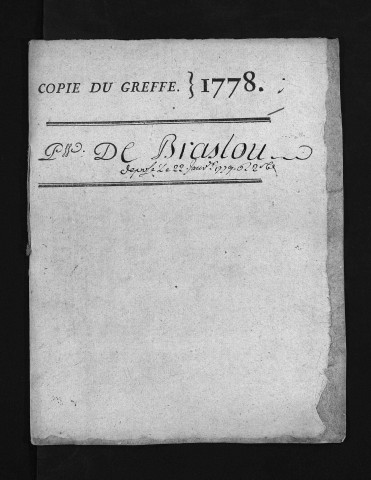 COPIE DU GREFFE. } 1778.
De Braslou
déposé Le 22 Janv. 1779.